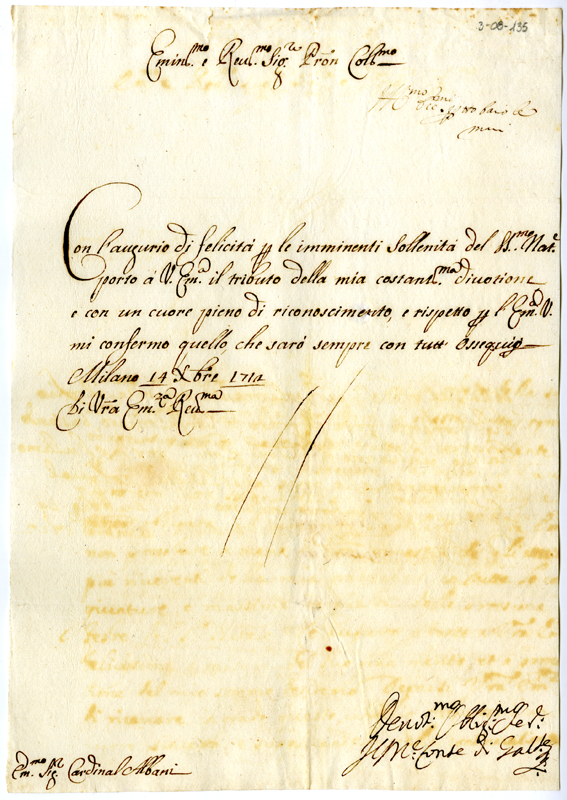 3-08-135
Emin.mo e Reu.mo Sig.re Prõn Coll.mo
Con l'augurio di felicità p le imminenti Sollenità del SS.mo Nat.e
porto à V. Em.a il tributo della mia costant.ma divotione
e con un cuore pieno di riconoscimento, e rispetto p l'Em.a V.
mi confermo quello, che sarò sempre con tutt Ossequio
Milano 14 Xbre 1714
Di Vra Em.za Reu.ma
Deuot.mo Obblig.mo Se.r
Il M.e Conte di
Em.mo Sig.r Cardinal Albani